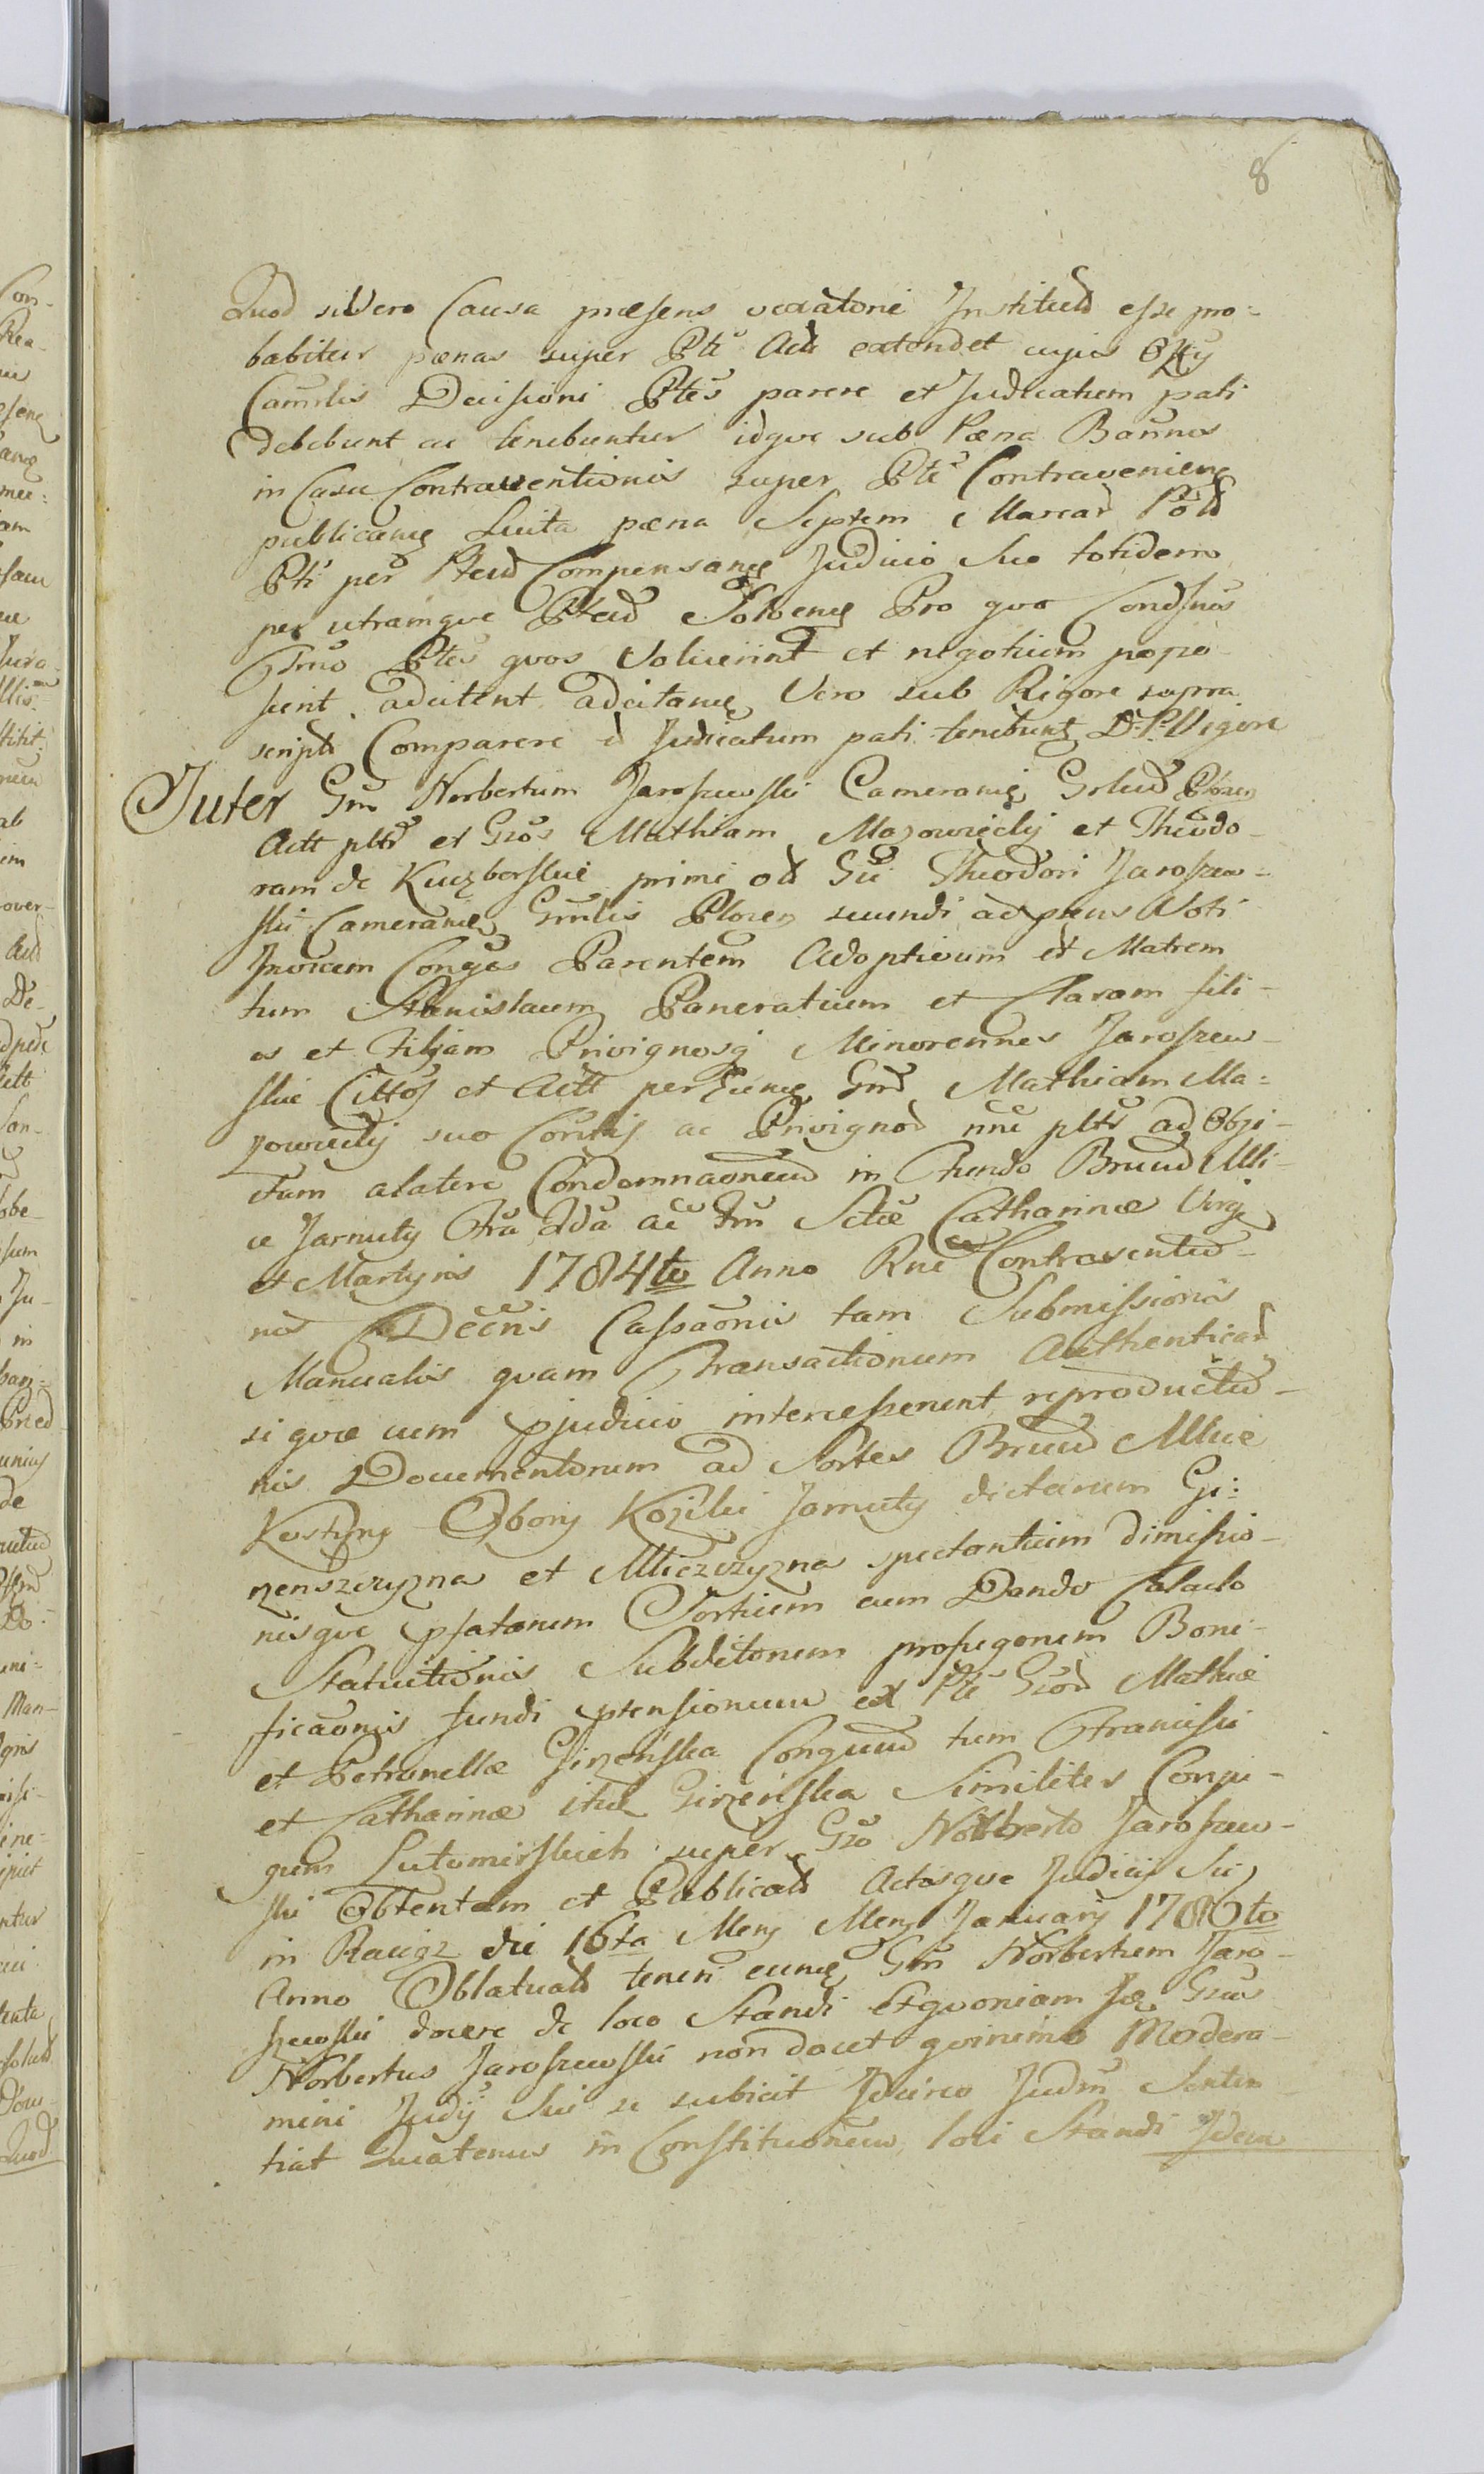 8
Quod si Vero Causa præsens vexatorie Institutã esse pro-
babitur pænas super Pte Actã extendet cujus Offy
Camrlis Decisioni Ptes parere et Judicatum pati
Debebunt ac tenebuntur idqve sub Pæna Bannes
in Casu Contraventionis super Pte Contravenienę
publicanę Luita pæna Septem Marcar Pold
Pti per Pteud Compensanę Judicio Suo totidem
per utramqve Pteud Solvenę Pro qvo
Ptes qvos Voluerint et negotium popo
scent adcitent adcitanę Vero sub Rigore supra
scriptã Comparere et Judicatum pati tenebunt D. P. Vigore
Inter Gm Norbertum Jaroszewski Cameranę Grlud Plozen
Actt pltr et Gzos Mathiam Mazowiecki et Theodo-
ram de Kuczborskie primi od Gu Theodori Jaroszew-
ski Cameranę Grmlis Plozen secundi ad præns Voti
Invicem Conges Parentem Adoptivum et Matrem
tum Stanislaum Pancratium et Claram fili-
os et Filjam Privignosq Minorennes Jaroszew-
skie Cittos et Actt per Eunę Gm Mathiam Ma-
zowiecki suo Conthi ac Privignod nne pltr ad Obji-
tam alatere Condemnaonem in Thendo Bruud Mli-
ce Jarnuty Fra 2da ac Fm Sctæ Catharinæ Virgi
et Martyris 1784to Anno Rne Contraventio-
nis Decris Cassaonis tam Submissionis
Manualis qvam Transactionum Authenticar
si qvæ cum pjudicio intercesserunt reproductio-
nis Documentorum ad Sortes Bruud Mlice
Kostry Obory Kozilu Jarnuty dictarum Gi:
zenszczyzna et Mliczczyzna spectantium dimissio-
nisqve psatarum Sortium cum Dando Calculo
Statuitionis Subditorum profugorum Boni-
ficaonis fundi ptensionum ex Pte Gzod Mathiæ
et Petronellæ Gizenska Conguud tum Francisci
et Catharinæ itid Gizenska Similiter Conju-
gum Lutomirskich super Gzo Norberto Jaroszew-
ski Obtentam et Publicatã Actisqve Judicij Sui
in Raciąz die 16ta Mens Mens January 1786to
Anno Oblatuatã teneri eunę Gm Norbertum Jaro-
szewski docere de loco Standi Et qvoniam Gzus
Norbertus Jaroszewski non docet qvinimo Modera-
mini Judij Sui se subicit Idcirco Judm Senten
tiat Quatenus in Constitutionem loci Standi Idem